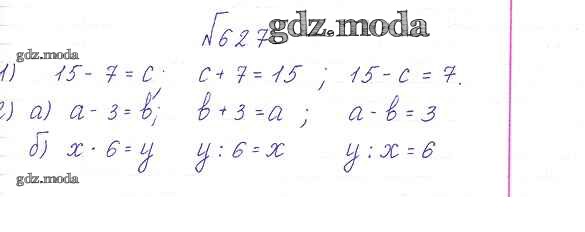 №627 gdz.moda
gdz.moda
1) 15 - 7 = c ; c + 7 = 15 ; 15 - c = 7.
2) а) a - 3 = b; b + 3 = a ; a - b = 3
б) x · 6 = y y : 6 = x y : x = 6
gdz.moda